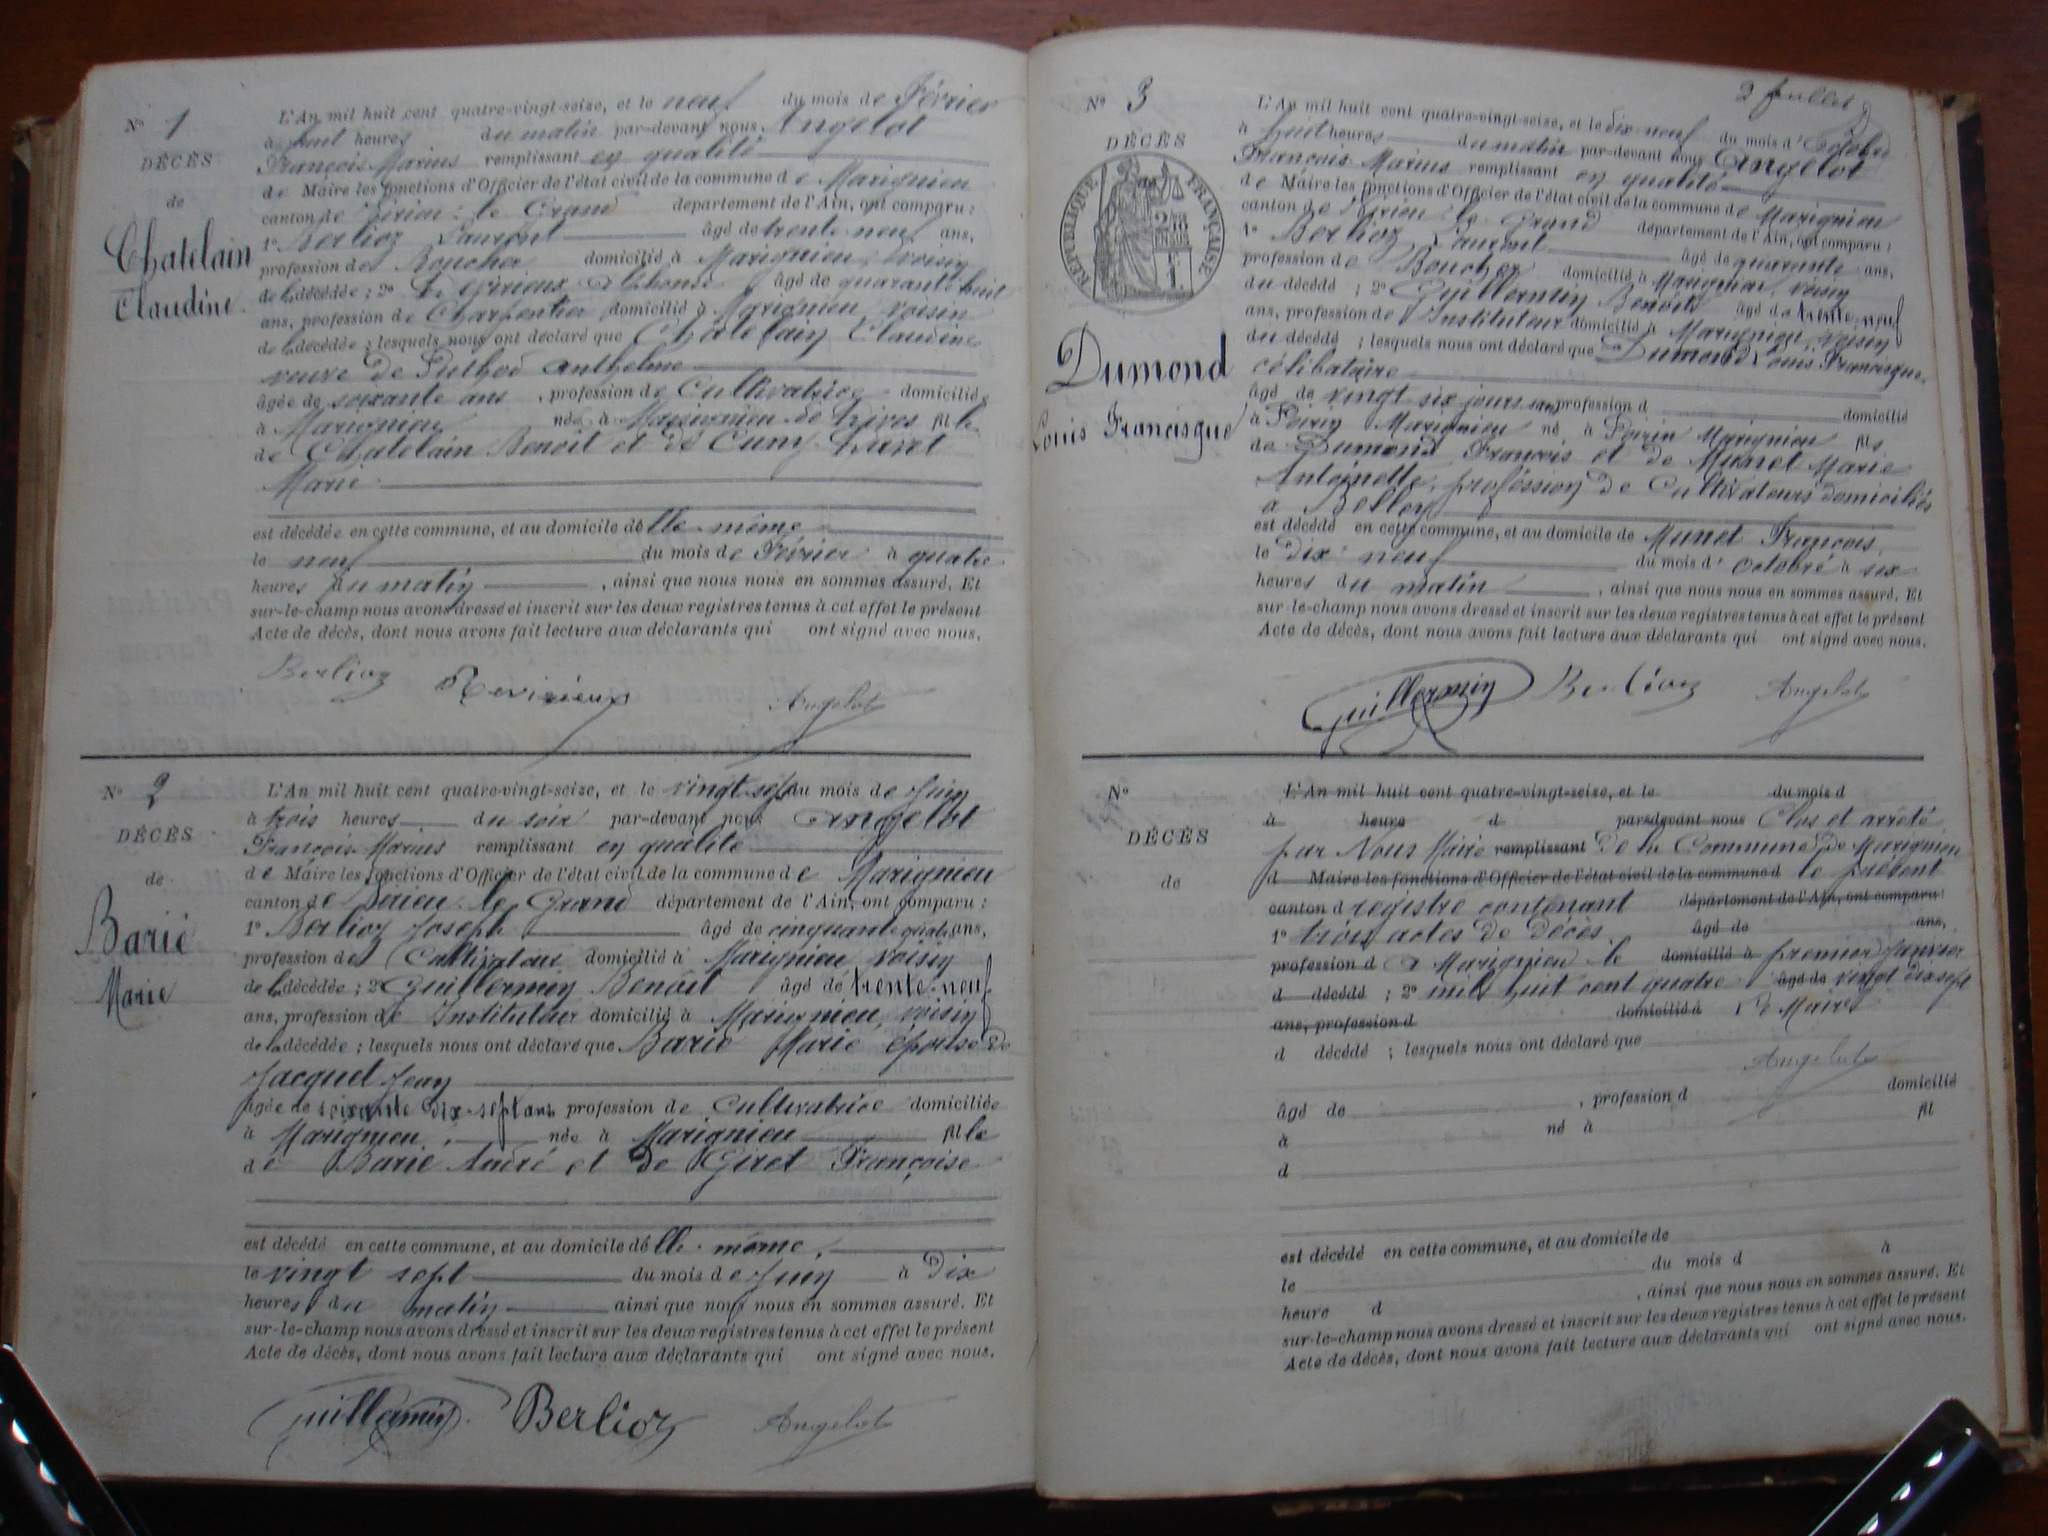 N° 1
DÉCÈS
de
Chatelain
Claudine
L'An mil huit cent quatre-vingt-seize, et le neuf du mois de Février
à huit heures du matin par-devant nous Angelot
François Marius remplissant en qualité
de Maire les fonctions d'Officier de l'état civil de la commune de Marignieu
canton de Virieu-le-Grand département de l'Ain, ont comparu :
1° Berlioz Laurent âgé de trente-neuf ans,
profession de Boucher domicilié à Marignieu, voisin
de la décédée ; 2° Alphonse âgé de quarante huit
ans, profession de Charpentier domicilié à Marignieu, voisin
de la décédée ; lesquels nous ont déclaré que Chatelain Claudine
veuve de Anthelme
âgée de soixante ans, profession de Cultivatrice domiciliée
à Marignieu née à fille
de Chatelain Benoit et de
Marie
est décédée en cette commune, et au domicile d'elle-même
le neuf du mois de Février à quatre
heures du matin, ainsi que nous nous en sommes assuré. Et
sur-le-champ nous avons dressé et inscrit sur les deux registres tenus à cet effet le présent
Acte de décès, dont nous avons fait lecture aux déclarants qui ont signé avec nous.
Berlioz Angelot
N° 2
DÉCÈS
de
Barié
Marie
L'An mil huit cent quatre-vingt-seize, et le vingt-sept du mois de Juin
à trois heures du soir par-devant nous Angelot
François Marius remplissant en qualité
de Maire les fonctions d'Officier de l'état civil de la commune de Marignieu
canton de Virieu-le-Grand département de l'Ain, ont comparu :
1° Berlioz Joseph âgé de cinquante quatre ans,
profession de Cultivateur domicilié à Marignieu, voisin
de la décédée ; 2° Guillermin Benoît âgé de trente-neuf
ans, profession de Instituteur domicilié à Marignieu, voisin
de la décédée ; lesquels nous ont déclaré que Barié Marie épouse de
Jacquet Jean
âgée de soixante dix-sept ans profession de Cultivatrice domiciliée
à Marignieu, née à Marignieu fille
de Barié André et de Giret Françoise
est décédé en cette commune, et au domicile d'elle-même,
le vingt sept du mois de Juin à dix
heures du matin ainsi que nous nous en sommes assuré. Et
sur-le-champ nous avons dressé et inscrit sur les deux registres tenus à cet effet le présent
Acte de décès, dont nous avons fait lecture aux déclarants qui ont signé avec nous.
Guillermin Berlioz Angelot
2
N° 3
DÉCÈS
RÉPUBLIQUE FRANÇAISE
Dumond
Louis Francisque
L'An mil huit cent quatre-vingt-seize, et le dix-neuf du mois d'Octobre
à huit heures du matin par-devant nous Angelot
François Marius remplissant en qualité
de Maire les fonctions d'Officier de l'état civil de la commune de Marignieu
canton de Virieu-le-Grand département de l'Ain, ont comparu :
1° Berlioz Laurent âgé de quarante ans,
profession de Boucher domicilié à Marignieu, voisin
du décédé ; 2° Guillermin Benoît âgé de trente-neuf
ans, profession de Instituteur domicilié à Marignieu, voisin
du décédé ; lesquels nous ont déclaré que Dumond Louis Francisque
célibataire
âgé de vingt six jours profession d domicilié
à Poirin Marignieu né à Poirin Marignieu fils
de Dumond François et de Munet Marie
Antoinette, profession de Cultivateurs domiciliés
à Belley
est décédé en cette commune, et au domicile de Munet François,
le dix-neuf du mois d'octobre à six
heures du matin, ainsi que nous nous en sommes assuré. Et
sur-le-champ nous avons dressé et inscrit sur les deux registres tenus à cet effet le présent
Acte de décès, dont nous avons fait lecture aux déclarants qui ont signé avec nous.
Guillermin Berlioz Angelot
N°
DÉCÈS
de
L'An mil huit cent quatre-vingt-seize, et le du mois d
à heure d par-devant nous Clos et arrêté
par Nous Maire remplissant de la Commune de Marignieu
d Maire les fonctions d'Officier de l'état civil de la commune d le présent
canton d registre contenant département de l'Ain, ont comparu :
1° trois actes de décès. âgé de ans,
profession d à Marignieu le domicilié à premier Janvier
d décédé ; 2° mil huit cent quatre âgé de vingt dix sept
ans, profession d domicilié à Le Maire
d décédé ; lesquels nous ont déclaré que
Angelot
âgé de, profession d domicilié
à né à fil
d
est décédé en cette commune, et au domicile de
le du mois d à
heure d, ainsi que nous nous en sommes assuré. Et
sur-le-champ nous avons dressé et inscrit sur les deux registres tenus à cet effet le présent
Acte de décès, dont nous avons fait lecture aux déclarants qui ont signé avec nous.